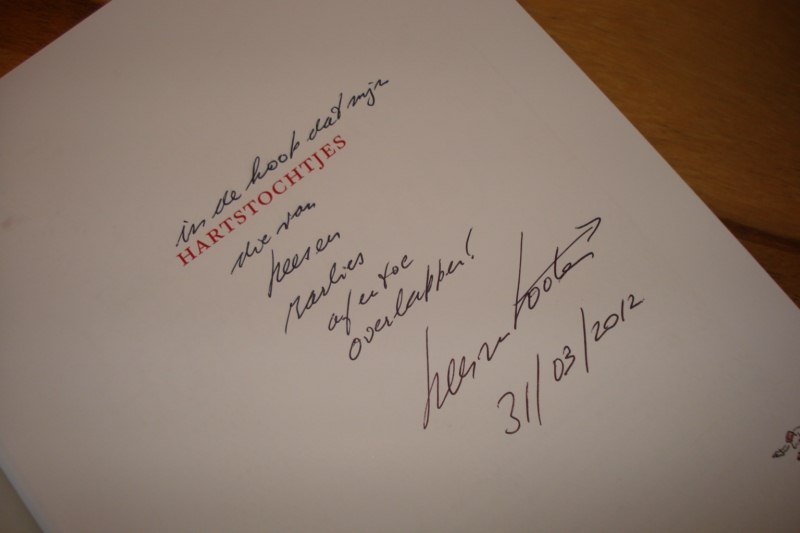 in de hoop dat mijn
HARTSTOCHTJES
die van
Kees en
Marlies
af en toe
overlappen!
Kees van Kooten
31/03/2012